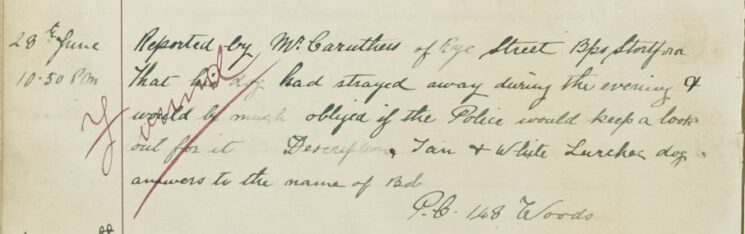 28th June Reported by Mr Caruthers of Rye Street Bps Stortford
10-50 Pm that his dog had strayed away during the evening &
would be much obliged if the Police would keep a look
out for it Description, Tan & White Lurcher dog.
answers to the name of Bob
P.C. 148 Woods